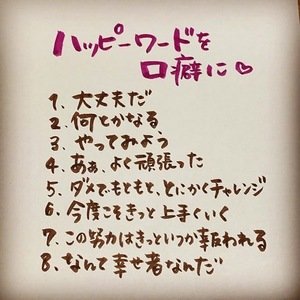 ハッピーワードを
口癖に♡
1、大丈夫だ
2、何とかなる
3、やってみよう
4、あぁ、よく頑張った
5、ダメでもともと、とにかくチャレンジ
6、今度こそきっと上手くいく
7、この努力はきっといつか報われる
8、なんて幸せ者なんだ